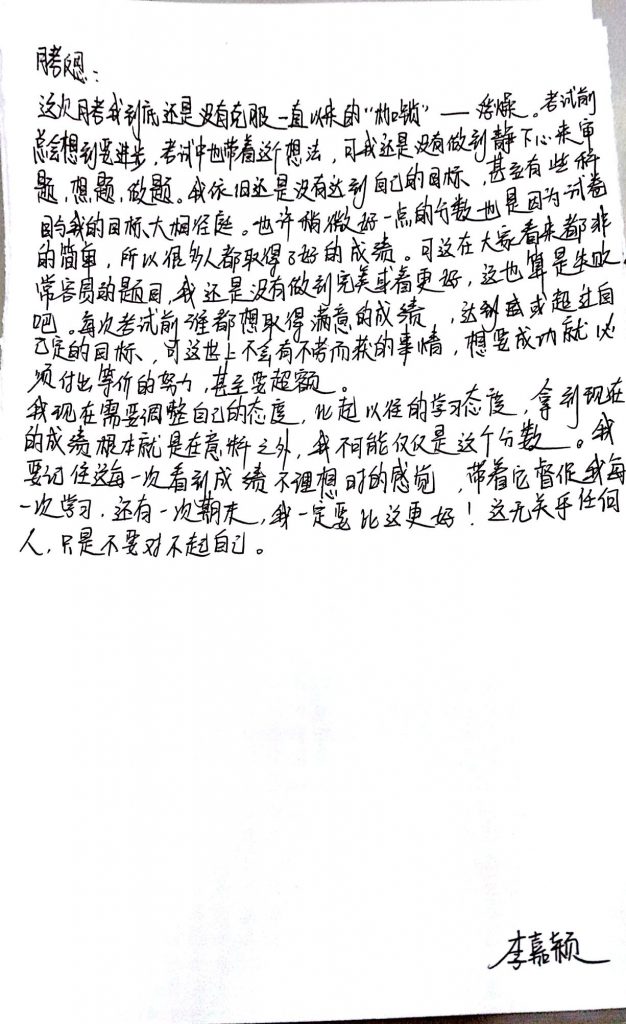 月考反思：
这次月考我到底还是没有克服一直以来的“枷锁”——浮燥。考试前
总会想到要进步，考试中也带着这个想法，可我还是没有做到静下心来审
题，想题，做题。我依旧还是没有达到自己的目标，甚至有些科
目与我的目标大相径庭。也许稍微好一点的分数也是因为试卷
的简单，所以很多人都取得了好的成绩。可这在大家看来都非
常容易的题目，我还是没有做到完美或者更好，这也算是失败
吧。每次考试前谁都想取得满意的成绩，达到或超过自
己定的目标，可这世上不会有不劳而获的事情，想要成功就必
须付出等价的努力，甚至要超额。
我现在需要调整自己的态度，比起以往的学习态度，拿到现在
的成绩根本就是在意料之外，我不可能仅仅是这个分数。我
要记住这每一次看到成绩不理想时的感觉，带着它督促我每
一次学习，还有一次期末，我一定要比这更好！这无关乎任何
人，只是不要对不起自己。
李嘉颖